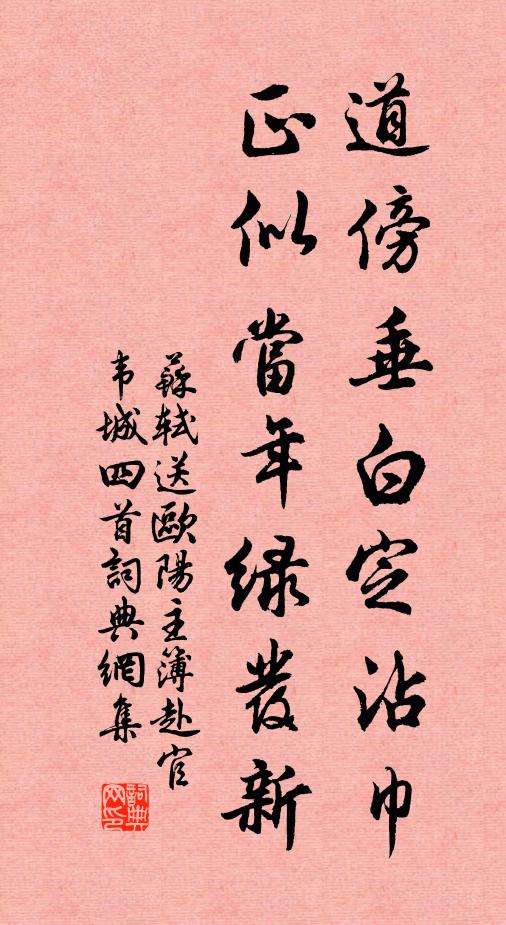 道傍垂白定沾巾
正似當年緑發新
蘇軾送歐陽主簿赴官
韦城四首詞典網集
詞典网印